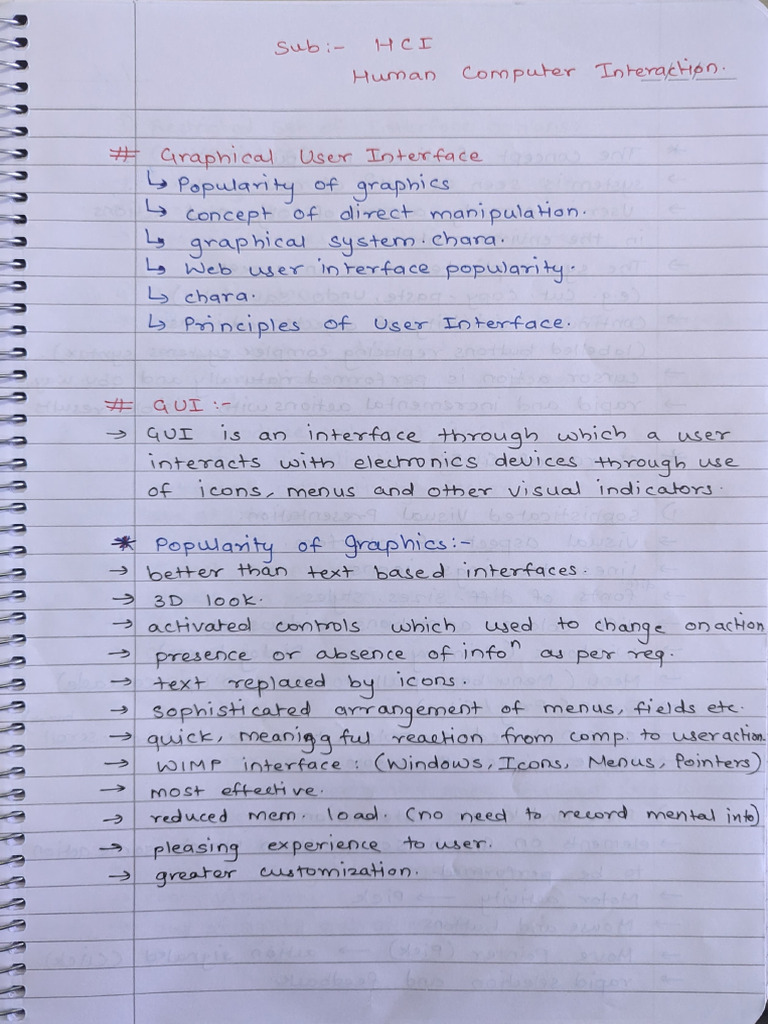 Sub:- HCI
Human Computer Interaction.
# Graphical User Interface
↳ Popularity of graphics
↳ concept of direct manipulation.
↳ graphical system. chara.
↳ Web user interface popularity.
↳ chara.
↳ Principles of User Interface.
# GUI :-
→ GUI is an interface through which a user
interacts with electronics devices through use
of icons, menus and other visual indicators.
* Popularity of graphics:-
→ better than text based interfaces.
→ 3D look.
→ activated controls which used to change on action
→ presence or absence of infoⁿ as per req.
→ text replaced by icons.
→ sophisticated arrangement of menus, fields etc.
→ quick, meaningful reaction from comp. to user action.
→ WIMP interface : (Windows, Icons, Menus, Pointers)
→ most effective.
→ reduced mem. load. (no need to record mental info)
→ pleasing experience to user.
→ greater customization.